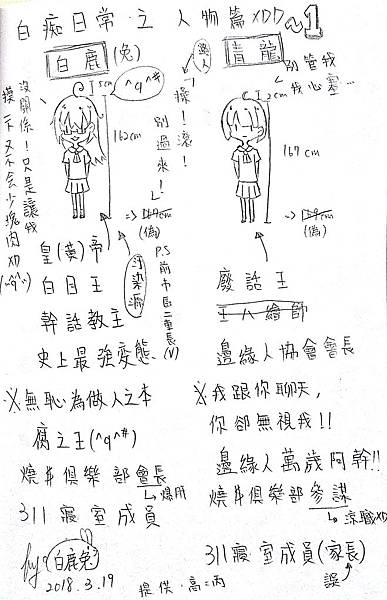 白痴日常·之 人物篇XDD~1
白鹿(兔)
路人
青龍
別管我
我心塞…
5cm
^q^#
162cm
167cm
沒關係!只是讓我
摸一下又不会少塊肉XD
操!滾!
別過來!
(偽)
(偽)
汙染源
皇(黄)帝
白目王
幹話教主
史上最強變態
P.S前市區二重長(V)
廢話王
王八繪師
邊緣人協會會長
※無恥為做人之本
腐之王(^q^#)
燒丼俱樂部會長
311寢室成員
※我跟你聊天,
你卻無視我!!
邊緣人萬歲阿幹!!
燒丼俱樂部參謀
311寢室成員(家長)
誤
白鹿兔
2018.3.19
提供·高=丙